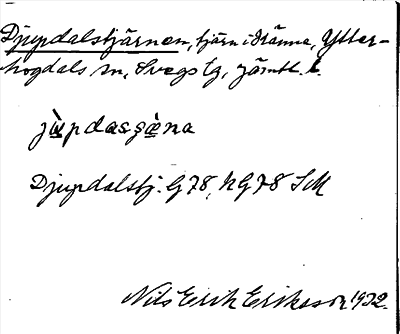 Djupdalstjärnen, tjärn i Ränna, Ytter-
hogdals sn, Svegs tg, Jämtl. l.
jùpdasʒæ̀na
Djupdalstj. G78, NG78 SM
Nils Erik Eriksson 1932.